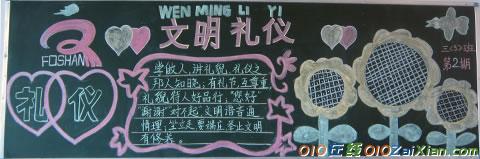 WEN MING LI YI
文明礼仪
FOSHAN
礼仪
学做人,讲礼貌,礼仪之
邦人知晓;有礼节,互尊重,
礼貌待人好品行;"您好"
谢谢 对不起,文明语言通
情理;
文明
有修养。
三(5)班
第2期
010在线 010ZaiXian.com